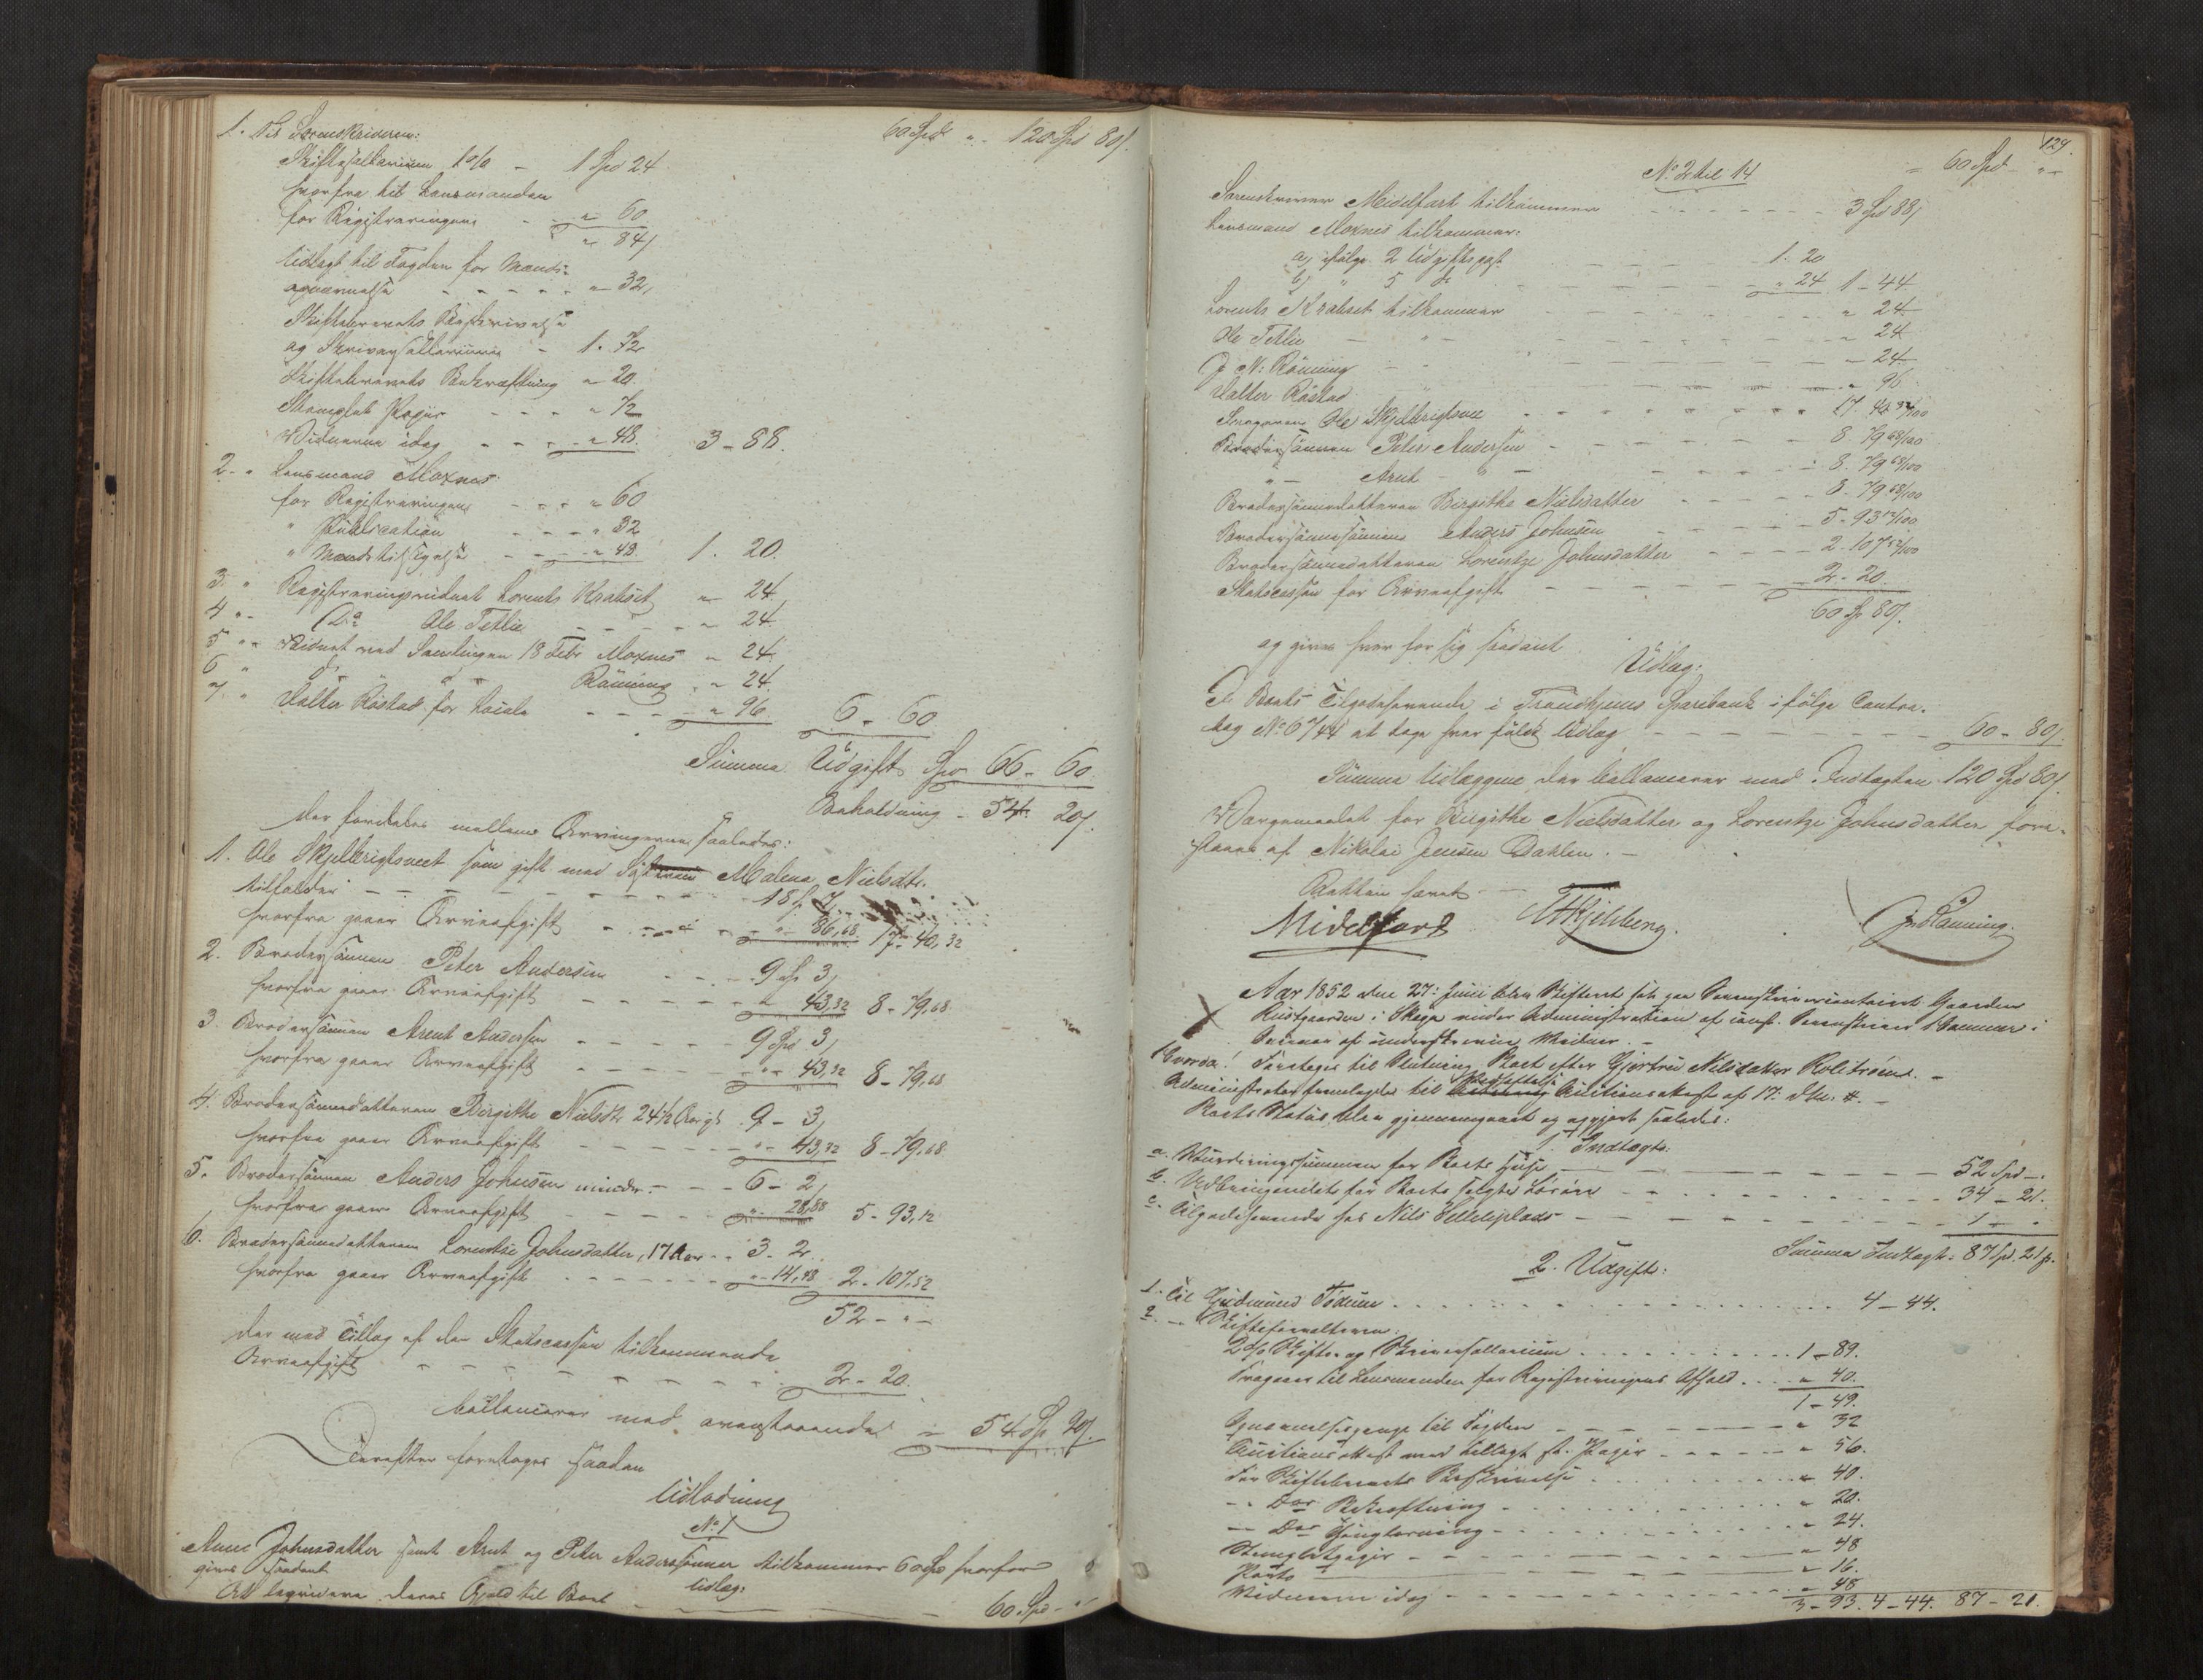 60 Spd " - 120 Spd 80 s.
1. Til Sorenskriveren:
Skiftesallarium 1 o/o - 1 Spd 24
hvorfra til Lensmanden
for Registreringen - " 60
" 84
Udlagt til Fogden for Mænds-
opnævnelse - - - - - " 32,
Skiftebrevets Beskrivelse
og Skriversallarium - 1. 72
Skiftebrevets Bekræftning " 20.
Stemplet Papir - - - " 72
Vidnerne idag - - - " 48. 3 - 88.
2. " Lensmand Moxnes
for Registreringen - - - " 60
" Publication - - - " 32
" Mænds tilsigelse - - - " 48. 1. 20.
3. " Registreringsvidnet Lorents Krabset " 24
4 " - Do Ole Tetlie - - - " 24
5 " - Vidnet ved Samlingen 18 Febr Moxnes " 24
6 " d " d " Rönning " 24.
7. " Halter Röstad for Locale - - - " 96. 6 - 60
Summa Udgift Spd 66 - 60.
Beholdning - 54 20 s.
der fordeles mellem Arvingerne saaledes:
1. Ole Skjelbrigtsveet som gift med Søsteren Malena Nielsdtr.
tilfalder - - - - - 18 s 7
hvorfra gaaer Arveafgift - - - " 86,68 17 - 40,32
2. Brodersönnen Peter Andersen - - - 9 Sp 3,
hvorfra gaaer Arveafgift - - - " 43,32 8 - 79,68
3. Brodersönnen Arent Andersen - - - 9 Spd 3,
hvorfra gaaer Arveafgift - - - " 43,32 8 - 79,68
4. Brodersönnedatteren Birgithe Nielsdtr 24½ Aar gl 9 - 3,
hvorfra gaaer Arveafgift - - - " 43,32 8 - 79,68
5. Brodersönnen Anders Johnsen mindr. - - - 6 - 2,
hvorfra gaaer Arveafgift - - - " 28,88 5 - 93,12
6. Brodersönnedatteren Lorentze Johnsdatter, 17 Aar - - 3 - 2
hvorfra gaaer Arveafgift - - - " 14,48 2 - 107,52
52 - " -
der med Tillæg af den Statscassen tilkommende
Arveafgift - - - - - 2 - 20.
ballancerer med ovenstaaende = 54 Sp 20 s.
Derefter foretoges saadan
Udlodning
No 1
Anne Johnsdatter samt Arnt og Peter Anderssönner tilkommer 60 Spd hvorfor
gives saadant Udlæg:
At liqvidere deres Gjeld til Boet - - - 60 Spd - "
129.
= 60 Spd - " -
No 2 til 14
Sorenskriver Midelfart tilkommer - - - 3 Spd 88 s
Lensmand Moxnes tilkommer:
a, ifølge 2 Udgiftspost - - - 1. 20
b, " 5 do - - - " 24 1 - 44
Lorents Krabset tilkommer - - - " 24
Ole Tetlie - " - - - - " 24
J. N: Rönning - - - - 24
Halter Röstad " - - - " 96
Svogeren Ole Skjelbrigtsvee - - - 17. 40 32/100
Brodersönnen Peter Andersen - - - 8. 79 68/100
" - Arnt - " - - - 8. 79 68/100
Brodersönnedatteren Birgithe Nielsdatter - - - 8. 79 68/100
Brodersönnesönnen Anders Johnsen - - - 5 - 93 12/100
Brodersönnedatteren Lorentze Johnsdatter - - - 2. 107 52/100
Statscassen for Arveafgift - - - 2 - 20.
60 Sp 80 s.
og gives hver for sig saadant
Udlæg:
I Boets Tilgodehavende i Trondhjems Sparebank ifölge Contra-
bog No 6744 at tage hver fuldt Udlæg - - - 60 - 80 s.
Summa Udlæggene der ballancerer med Indtægten 120 Spd 80 s.
Værgemaalet for Birgithe Nielsdatter og Lorentze Johnsdatter fore-
staaes af Nikolai Jensen Dahlen. -
Retten hævet. -
Midelfart THjelberg. JNRönning.
Aar 1852 den 27: Juni blev Skifteret sat paa Sorenskrivercontoiret Gaarden
Rustgaarden i Skeye under Administration af const. Sorenskriver Hammer i
Overvær af underskrevne Vidner. -
Hvorda! Foretages til Slutning Boet efter Gjertru Nilsdatter Rolitröen. -
Administrator fremlagde til Vedheftelse Auctionsattest af 17: dtn. #. -
Boets Status blev gjennemgaaet og opgjort saaledes:
1. Indtægt:
a. Vurderingssummen for Boets Huse - - - 52 Spd -.
b. Udbringendet for Boets solgte Lösöre - - - 34 - 21.
c. Tilgodehavende hos Nils Lilleliplads - - - 1 - "
Summa Indtægt - 87 Spd. 21 s.
2. Udgift:
1. Til Gudmund Födum - - - 4 - 44.
2. - Skifteforvalteren:
2 o/o Skifte- og Skriversallarium - - - 1 - 89.
Fragaaer til Lensmanden for Registreringens Afhold - - " 40.
1 - 49.
Opnævnelsespenge til Fogden - - - " 32
Auctionsattest med tillagt st. Papir - - - " 56.
For Skiftebrevets Beskrivelse - - - " 40.
- " Dos Bekræftning - - - " 20.
- Dos Thinglæsning - - - " 24.
Stempletpapir - - - " 48
Porto - - - " 16.
Vidnerne idag - - - " 48
3 - 93. 4 - 44. 87 - 21.